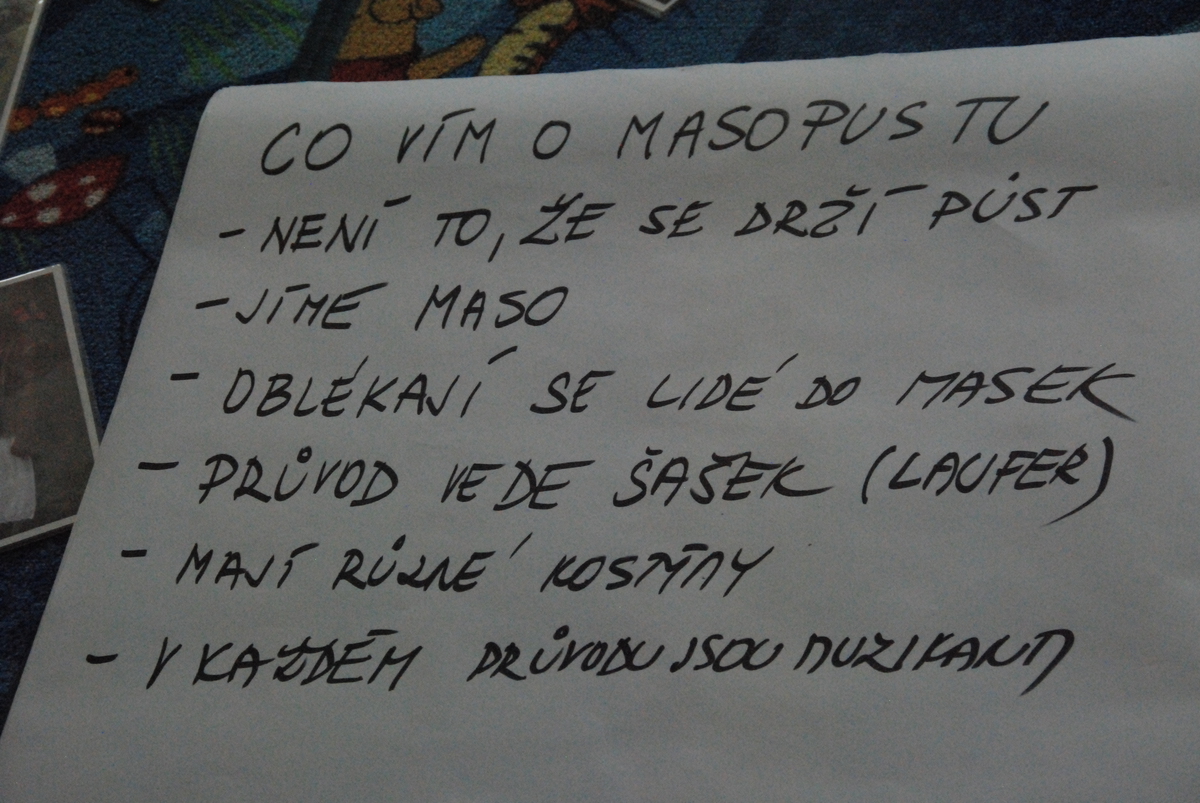 CO VÍM O MASOPUSTU
- NENÍ TO, ŽE SE DRŽÍ PŮST
- JÍME MASO
- OBLÉKAJÍ SE LIDÉ DO MASEK
- PRŮVOD VEDE ŠAŠEK (LAUFER)
- MAJÍ RŮZNÉ KOSTÝMY
- V KAŽDÉM PRŮVODU JSOU MUZIKANTI